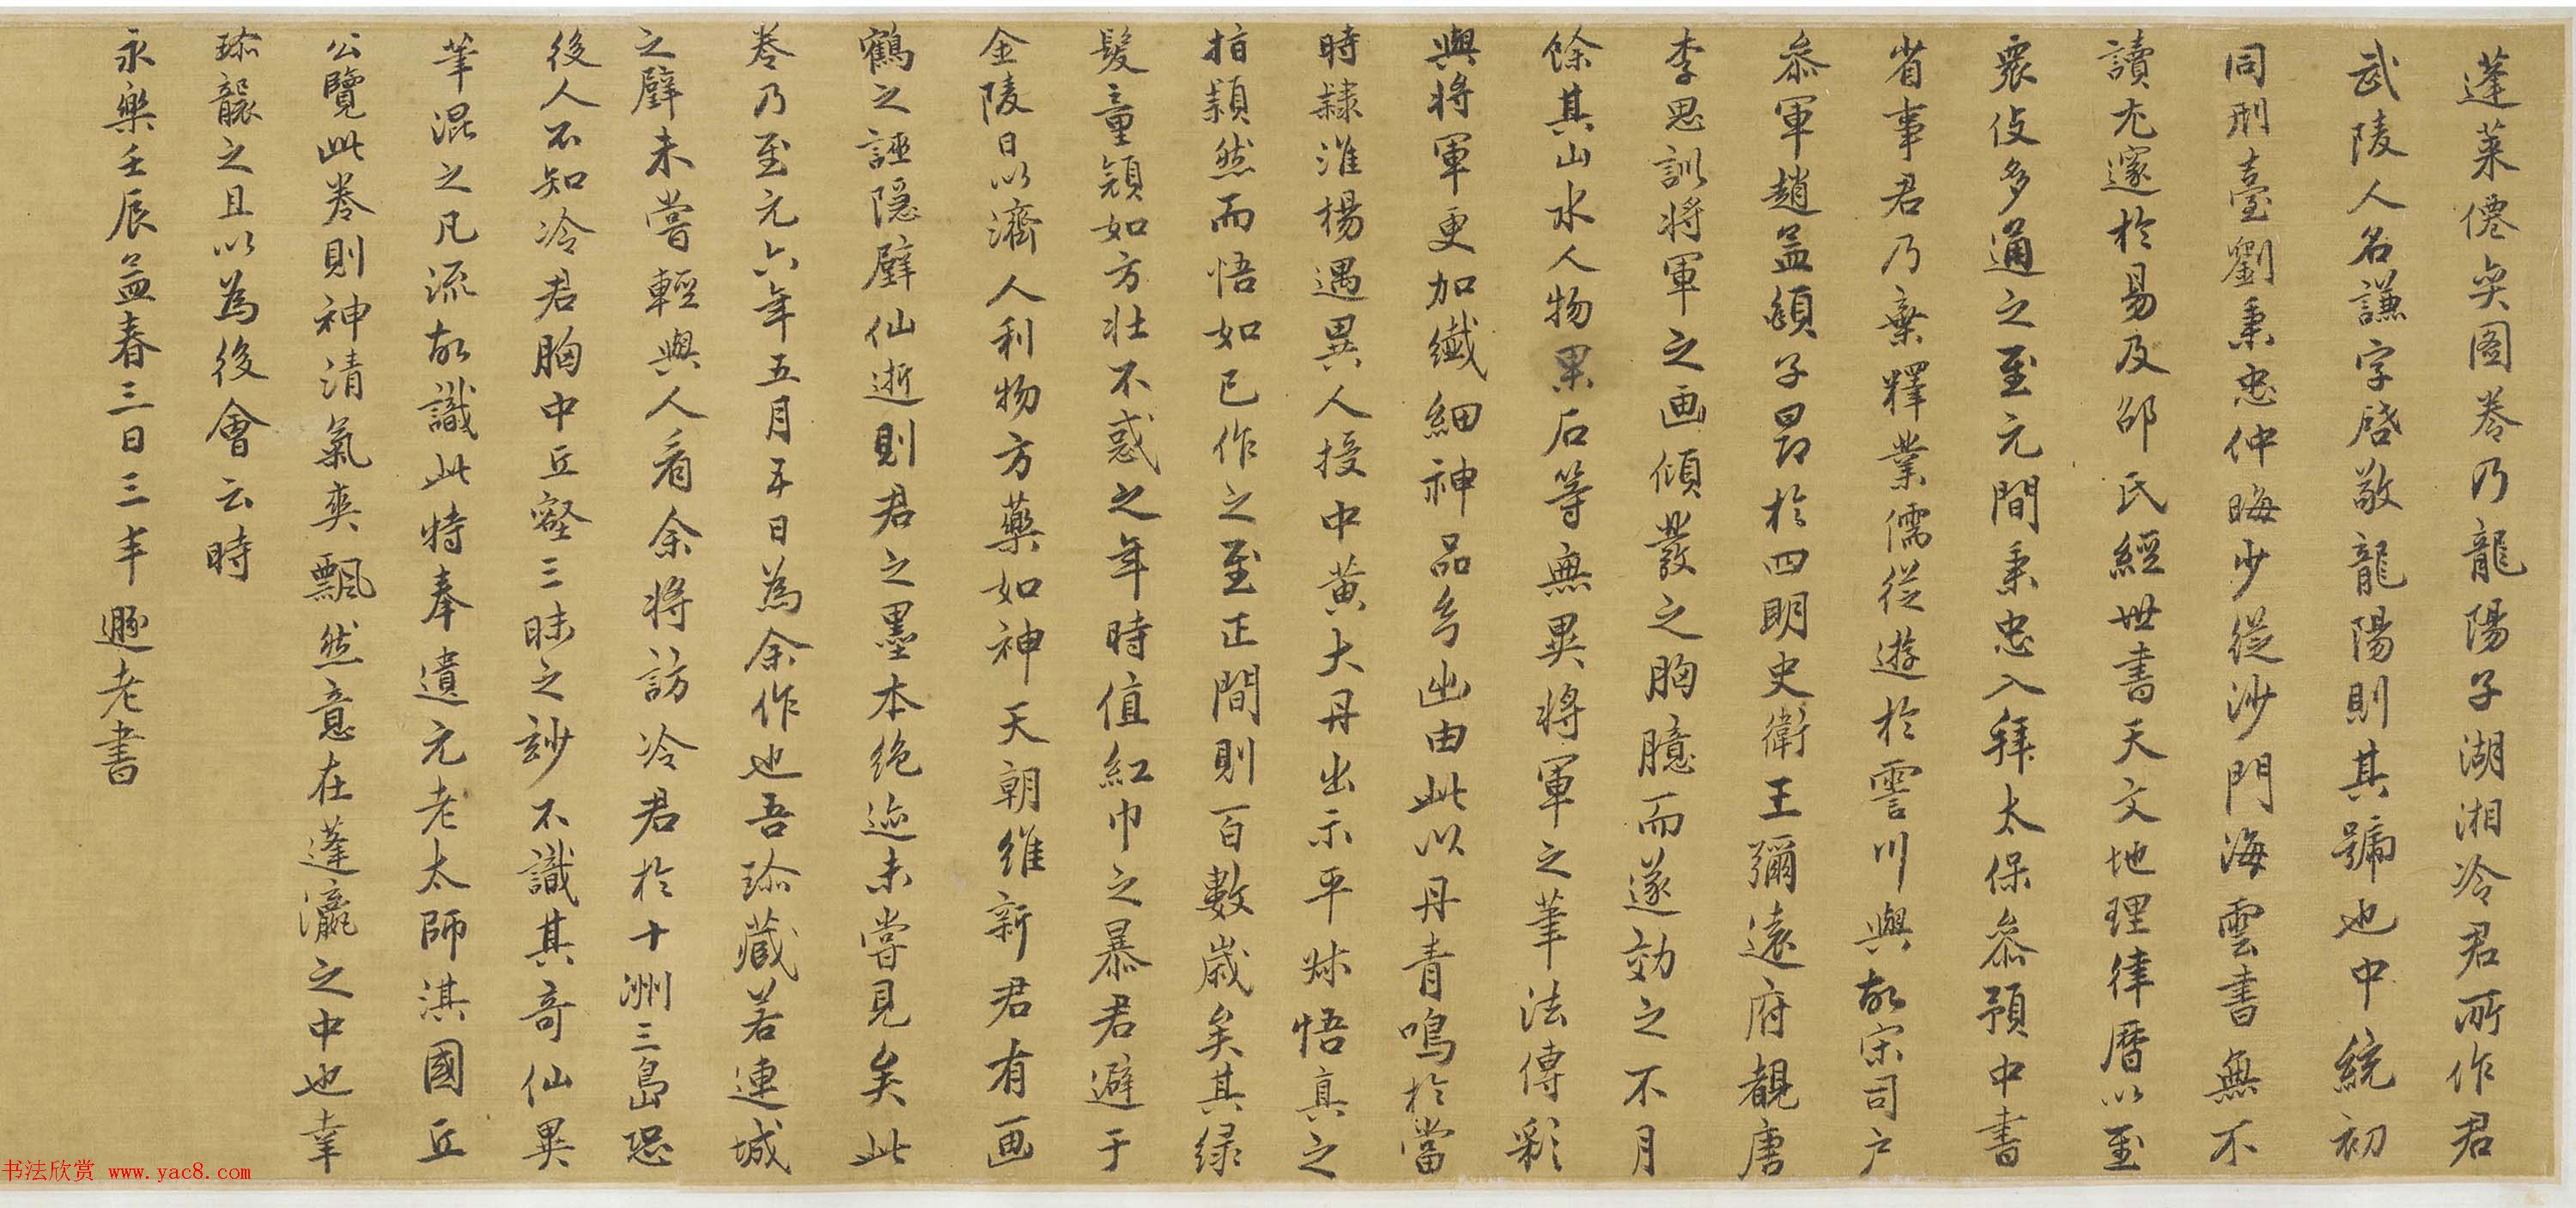 蓬萊僊奕图卷乃龍陽子湖湘冷君所作君
武陵人名謙字啓敬龍陽則其號也中統初
同刑臺劉秉忠仲晦少從沙門海雲書無不
讀尤邃於易及邵氏經世書天文地理律曆以至
衆伎多通之至元間秉忠入拜太保叅預中書
省事君乃棄釋業儒從遊於霅川與故宋司户
叅軍趙孟頫子昂於四明史衛王彌遠府覩唐
李思訓將軍之画傾發之胸臆而遂効之不月
餘其山水人物窠石等無異將軍之筆法傳彩
與將軍更加纖細神品幻出由此以丹青鳴於當
時隸淮楊遇異人授中黄大丹出示平叔悟真之
指頴然而悟如已作之至正間則百數歲矣其绿
髮童顔如方壮不惑之年時值紅巾之暴君避于
金陵日以濟人利物方藥如神天朝维新君有画
鶴之誣隠壁仙逝則君之墨本绝迹未嘗見矣此
卷乃至元六年五月五日為余作也吾珎藏若連城
之璧未嘗輕與人看余将訪冷君於十洲三島恐
後人不知冷君胸中丘壑三昧之玅不識其奇仙異
筆混之凡流故識此特奉遺元老太師淇國丘
公覽此卷則神清氣爽飄然意在蓬瀛之中也幸
珎襲之且以為後會云時
永樂壬辰孟春三日三丰遯老書
书法欣赏 www.yac8.com